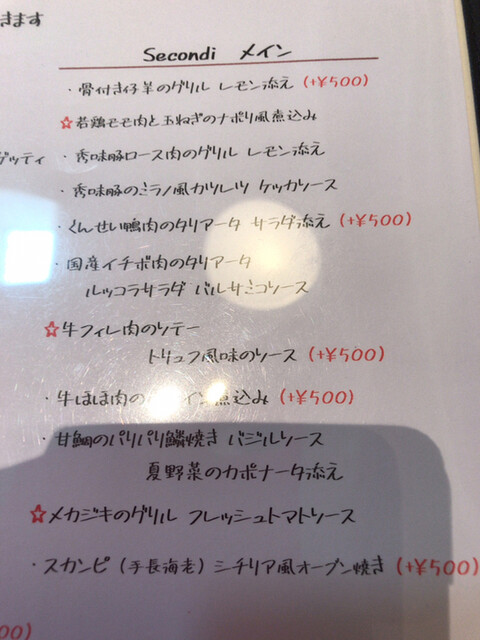 きます
Secondi メイン
・骨付き仔羊のグリル レモン添え (+¥500)
☆若鶏モモ肉と玉ねぎのナポリ風煮込み
ゲッティ
・秀味豚ロース肉のグリル レモン添え
・秀味豚のミラノ風カツレツ ケッカソース
・くんせい鴨肉のタリアータ サラダ添え (+¥500)
・国産イチボ肉のタリアータ
ルッコラサラダ バルサミコソース
☆牛フィレ肉のソテー
トリュフ風味のソース (+¥500)
・牛ほほ肉の イン煮込み (+¥500)
・甘鯛のパリパリ鱗焼き バジルソース
夏野菜のカポナータ添え
☆メカジキのグリル フレッシュトマトソース
・スカンピ (手長海老) シチリア風オーブン焼き (+¥500)
00)